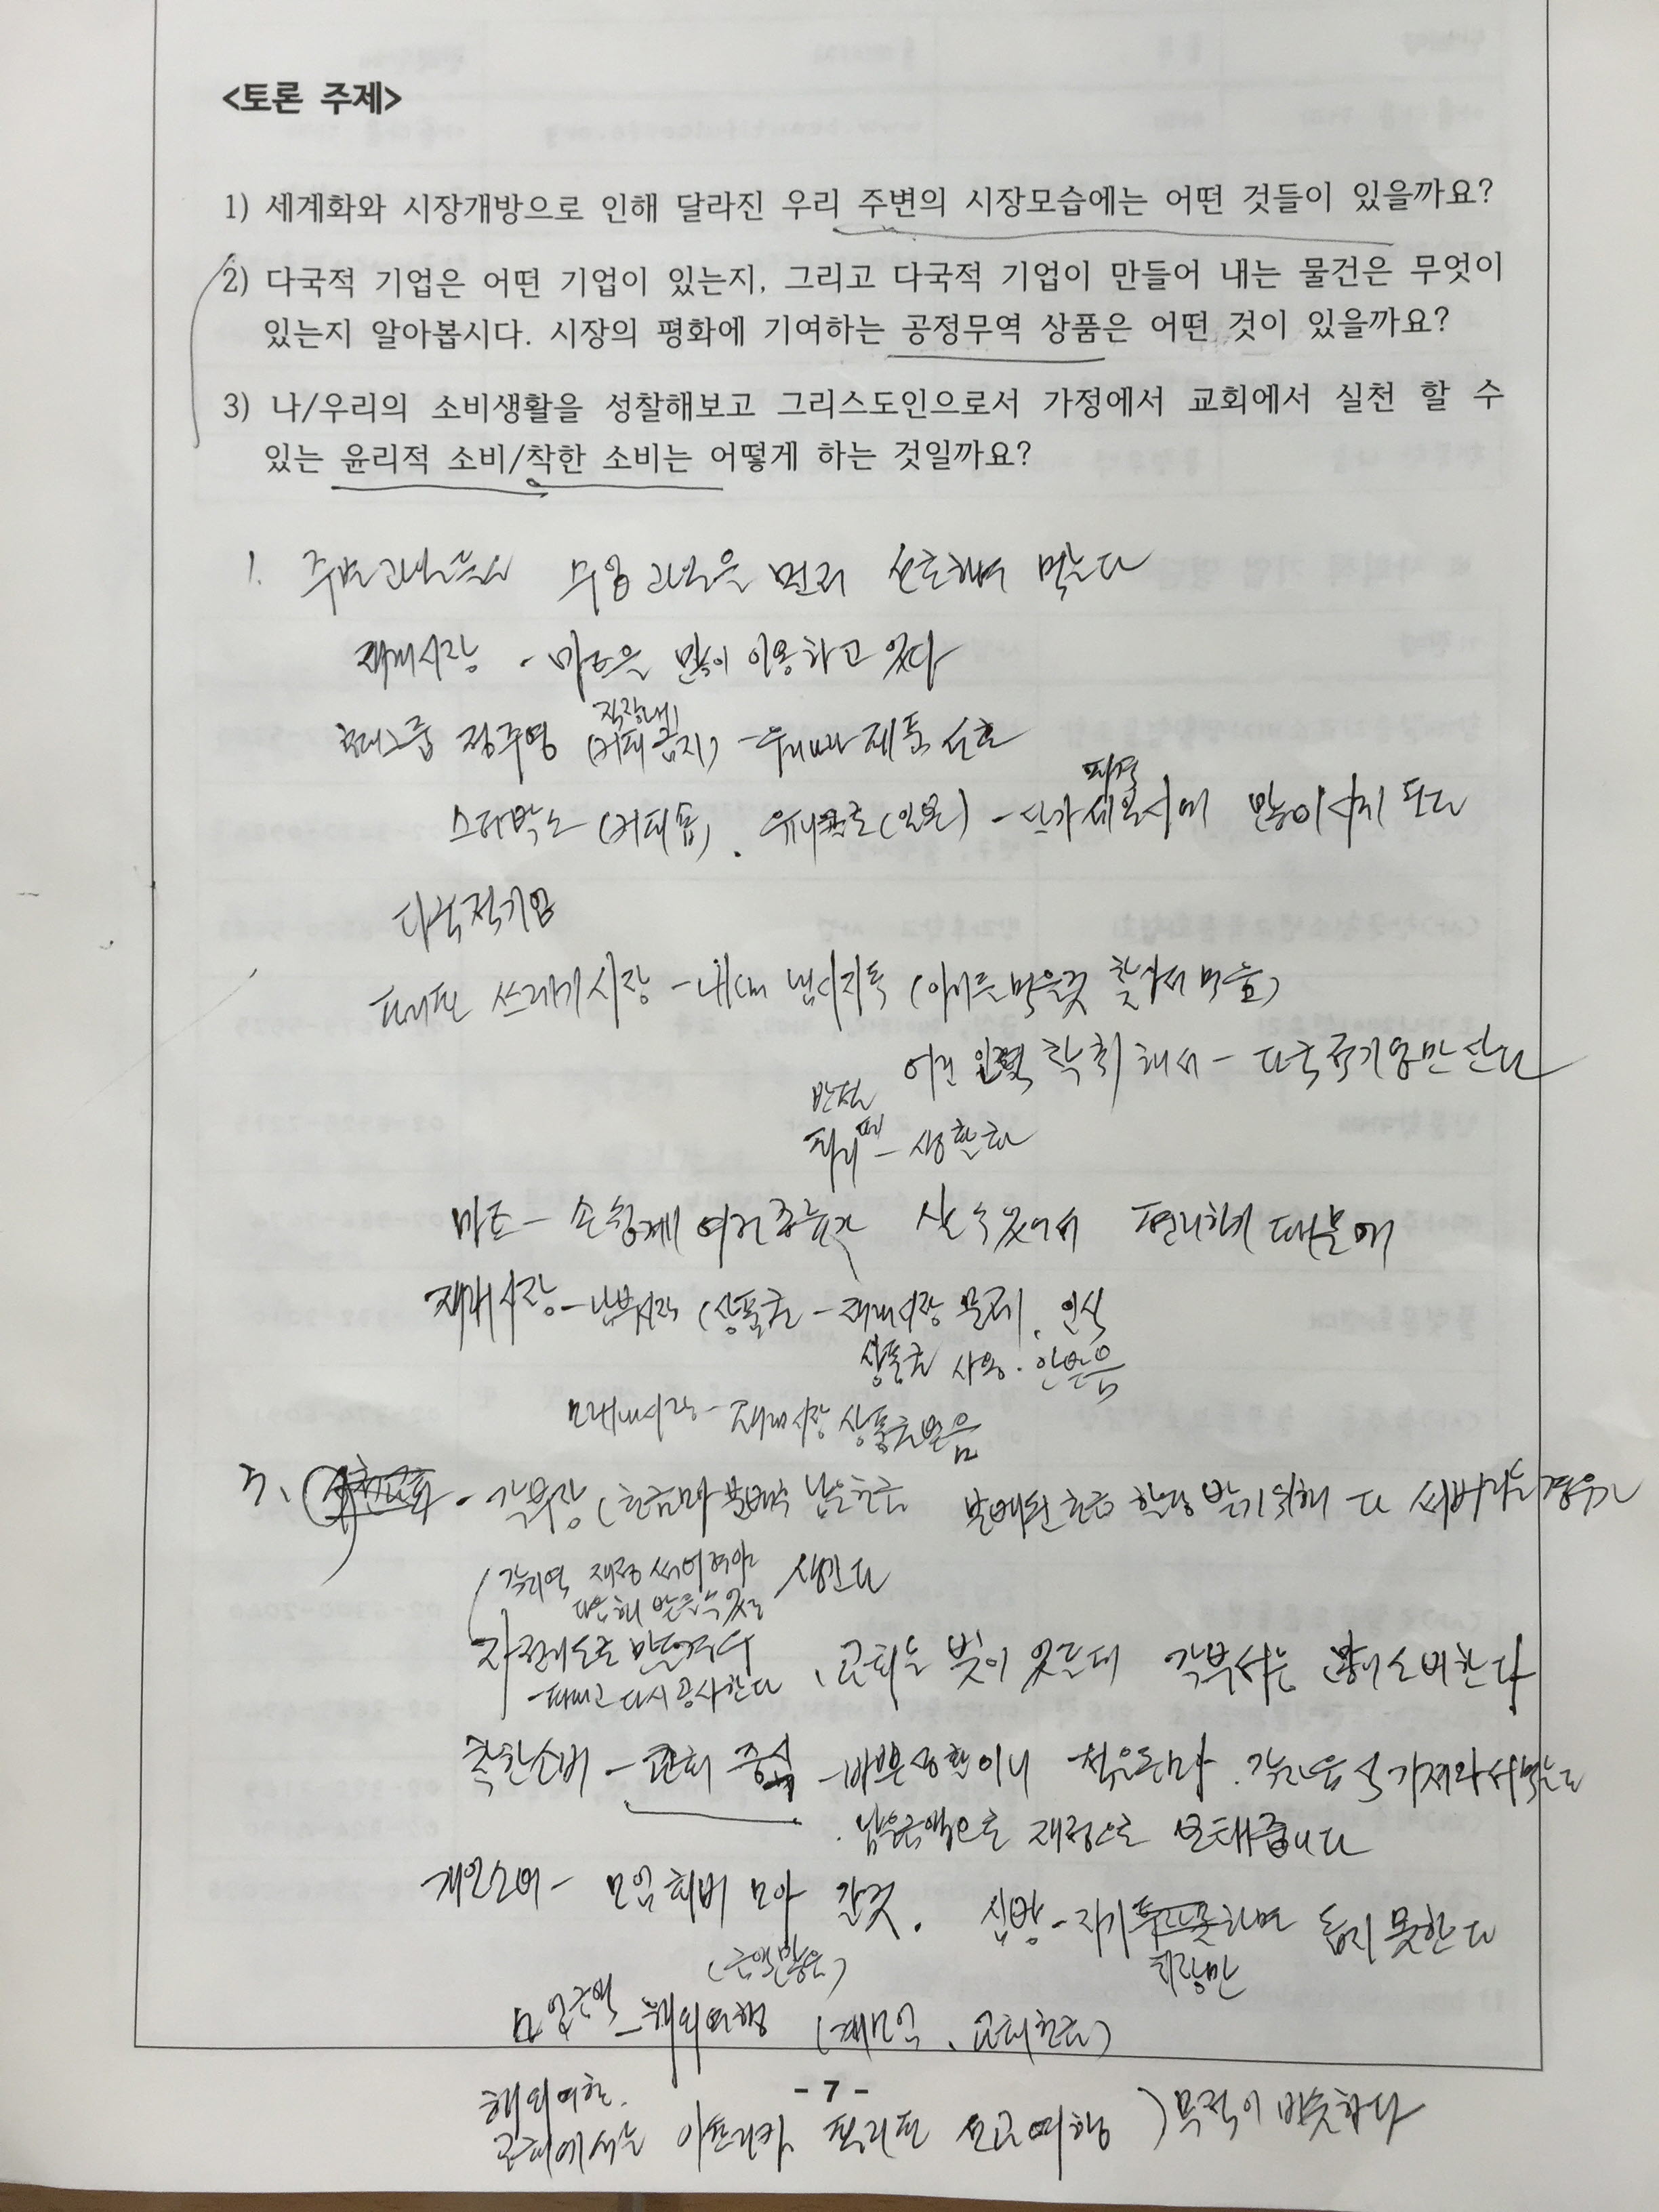 <토론 주제>
1) 세계화와 시장개방으로 인해 달라진 우리 주변의 시장모습에는 어떤 것들이 있을까요?
2) 다국적 기업은 어떤 기업이 있는지, 그리고 다국적 기업이 만들어 내는 물건은 무엇이
있는지 알아봅시다. 시장의 평화에 기여하는 공정무역 상품은 어떤 것이 있을까요?
3) 나/우리의 소비생활을 성찰해보고 그리스도인으로서 가정에서 교회에서 실천 할 수
있는 윤리적 소비/착한 소비는 어떻게 하는 것일까요?
1. 수입 과일을 먼저 선호해서 먹는다
재래시장 - 마트를 많이 이용하고 있다
현대그룹 정주영 (커피 금지) - 우리나라 제품 선호
직장내
스타박스 (커피숍). 유니클로 (일본) - 단가 세일시에 많이 사지 된다
다국적기업
쓰레기시장 - (아이들 먹을것 찾아서 먹음)
어린 인력 착취해서 - 다국적기업만 산다
반전
생활화
마트 - 손쉽게 여러종류가 살수있어서 편리하기 때문에
재래시장 - 남부시장 (상품권 - 재래시장 문제, 인식
상품권 사용. 안받음
모래내시장 - 재래시장 상품권받음
3. 각부장 (헌금마 분배속 남은헌금 분배된헌금 할당 받기위해 다 써버리는 경우가
생긴다
각지역 재정 써버려야
다음해 받을수있음
자전거도로 만들려다
때리고 다시 공사한다
, 교회는 빚이 있는데 각부서는 많이 소비한다
착한소비 - 교회 중심 - 바쁜생활이니 적은돈마. 각자음식 가져와서먹는다
. 남은금액으로 재정으로 보태줍니다
개인소비 - 모임 회비 모아 갈것. 심방 - 자기 못하면 돕지 못한다
(금액많음)
치장만
모임금액 - 해외여행 (계모임, 교회헌금)
- 7 -
해외여행.
교회에서는 아프리카, 필리핀 선교여행 ) 목적이 비슷하다